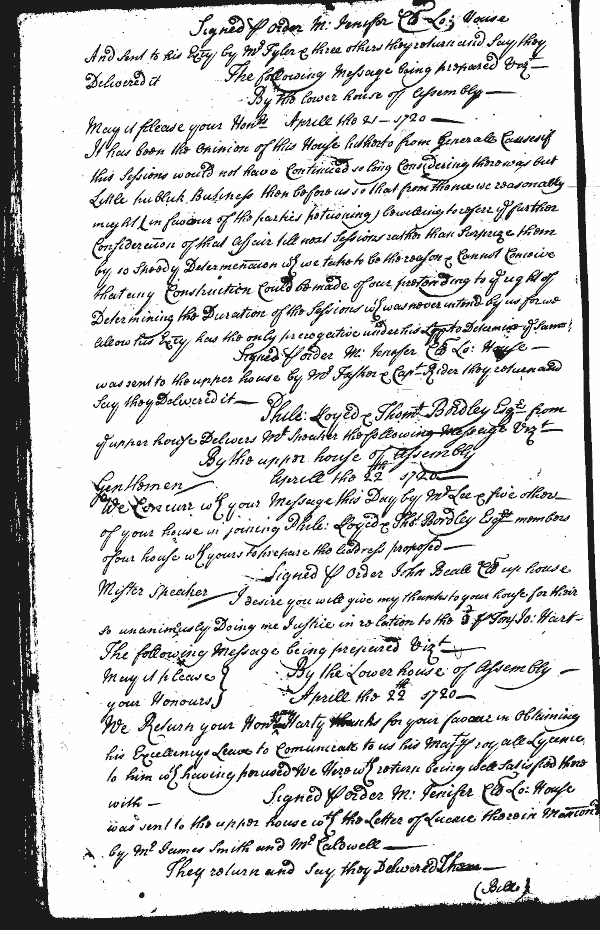 Signed p Order M: Jenifer Cl Lo: House
And sent to his Exty by Mr Tyler & three others they return and Say they
Delivered it The following Message being prepared Vizt
By the lower house of Assembly
May it please your Honrs Aprill the 21 1720
It has been the Opinion of this House hitherto from Generall Causes if
this Sessions would not have Continued so long Considering there was but
Little Publick Business then before us so that from thence we reasonably
might (in favour of the parties petitioning) be willing to referr ye further
Consideracion of that Affair till next Sessions rather than Surprize them
by so Speedy Determination wch we take to be the reason & Cannot Conceive
that any Construction Could be made of our pretending to ye right of
Determining the Duration of the Sessions wch was never intend by us for we
allow his Exty has the only prerogative under his to Determin ye Same
Signed p order M: Jenifer Cl Lo: House
was sent to the upper house by Mr & Capt Rider they return and
Say they Delivered it
Phile: Loyed & Thomas Bordley Esqrs from
ye upper house Delivers Mr Speaker the following Message Vizt
By the upper house of Assembly
Gentlemen Aprill the 22th 1720
We Concurr wth your Message this Day by Mr Lee & five others
of your house in joining Phile: Lloyed & Tho: Bordley Esqrs members
of our house wth yours to prepare the Address proposed
Signed p Order John Beall Cl up house
Mister Speaker I desire you will give my thanks to your house for their
so unanimously Doing me Justice in relation to the of Jo: Hart
The following Message being prepared Vizt
May it please By the Lower house of Assembly
your Honours Aprill the 22th 1720
We Return your Honrs our Harty thanks for your favour in Obtaining
his Excellencys Leave to Comunicate to us his Matys royall Lycence
to him wch having perused We Herewth return being well Satisfied there
with Signed p order M: Jenifer Cl Lo: House
was sent to the upper house wth the Letter of Lycence therein
by Mr James Smith and Mr Caldwell
They return and Say they Delivered Them
(Bill